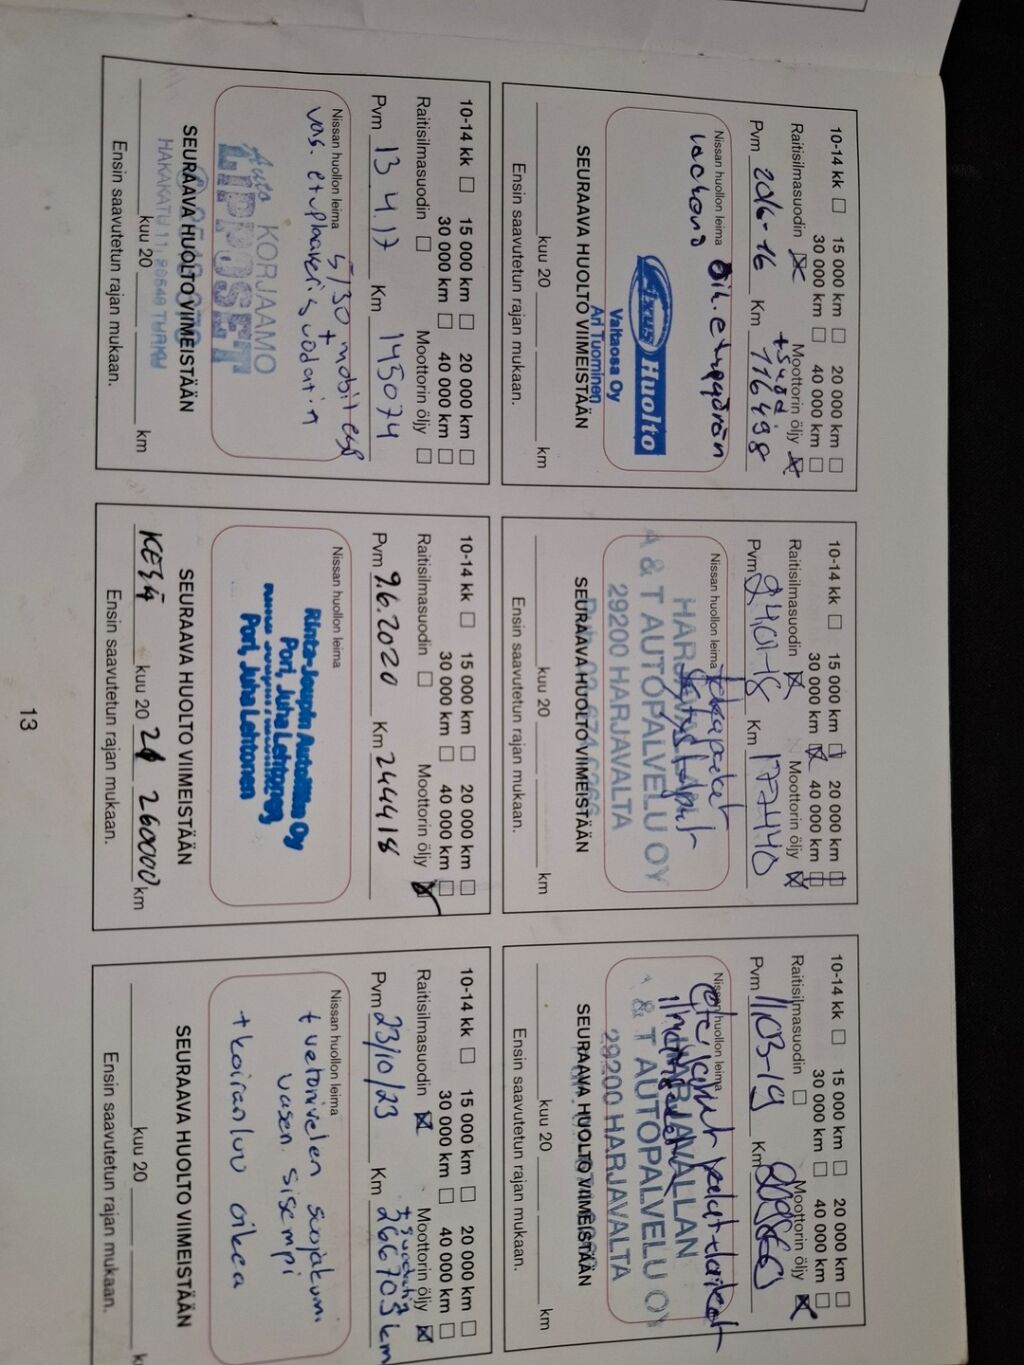 10-14 kk 15 000 km 20 000 km
30 000 km 40 000 km
Raitisilmasuodin Moottorin öljy
+ suod.
Pvm 2016-16 Km 116498
Nissan huollon leima Oik. etupyörän
vaihtona
Axus Huolto
Valtaosa Oy
Ari Tuominen
SEURAAVA HUOLTO VIIMEISTÄÄN
kuu 20 km
Ensin saavutetun rajan mukaan.
10-14 kk 15 000 km 20 000 km
30 000 km 40 000 km
Raitisilmasuodin Moottorin öljy
Pvm 2401-18 Km 177440
Nissan huollon leima
HARJAVALLAN
A & T AUTOPALVELU OY
29200 HARJAVALTA
SEURAAVA HUOLTO VIIMEISTÄÄN
kuu 20 km
Ensin saavutetun rajan mukaan.
10-14 kk 15 000 km 20 000 km
30 000 km 40 000 km
Raitisilmasuodin Moottorin öljy
Pvm 1103-19 Km
Nissan huollon leima
HARJAVALLAN
A & T AUTOPALVELU OY
29200 HARJAVALTA
SEURAAVA HUOLTO VIIMEISTÄÄN
kuu 20 km
Ensin saavutetun rajan mukaan.
10-14 kk 15 000 km 20 000 km
30 000 km 40 000 km
Raitisilmasuodin Moottorin öljy
Pvm 13.4.17 Km 145074
Nissan huollon leima 5/30 mobil esp
+
vas.
Auto KORJAAMO
LIPPOSET
SEURAAVA HUOLTO VIIMEISTÄÄN
HAKAKATU 11, 20540 TURKU
kuu 20 km
Ensin saavutetun rajan mukaan.
10-14 kk 15 000 km 20 000 km
30 000 km 40 000 km
Raitisilmasuodin Moottorin öljy
Pvm 9.6.2020 Km 244418
Nissan huollon leima
Rinta-Joupin Autoliike Oy
Pori, Juha Lehtonen
Pori, Juha Lehtonen
SEURAAVA HUOLTO VIIMEISTÄÄN
KESÄ kuu 20 21 260000 km
Ensin saavutetun rajan mukaan.
10-14 kk 15 000 km 20 000 km
30 000 km 40 000 km
Raitisilmasuodin Moottorin öljy
+ suodatin
Pvm 23/10/23 Km 266703 km
Nissan huollon leima
+ vetonivelen suojakumi
vasen sisempi
+ koiranluu oikea
SEURAAVA HUOLTO VIIMEISTÄÄN
kuu 20 km
Ensin saavutetun rajan mukaan.
13